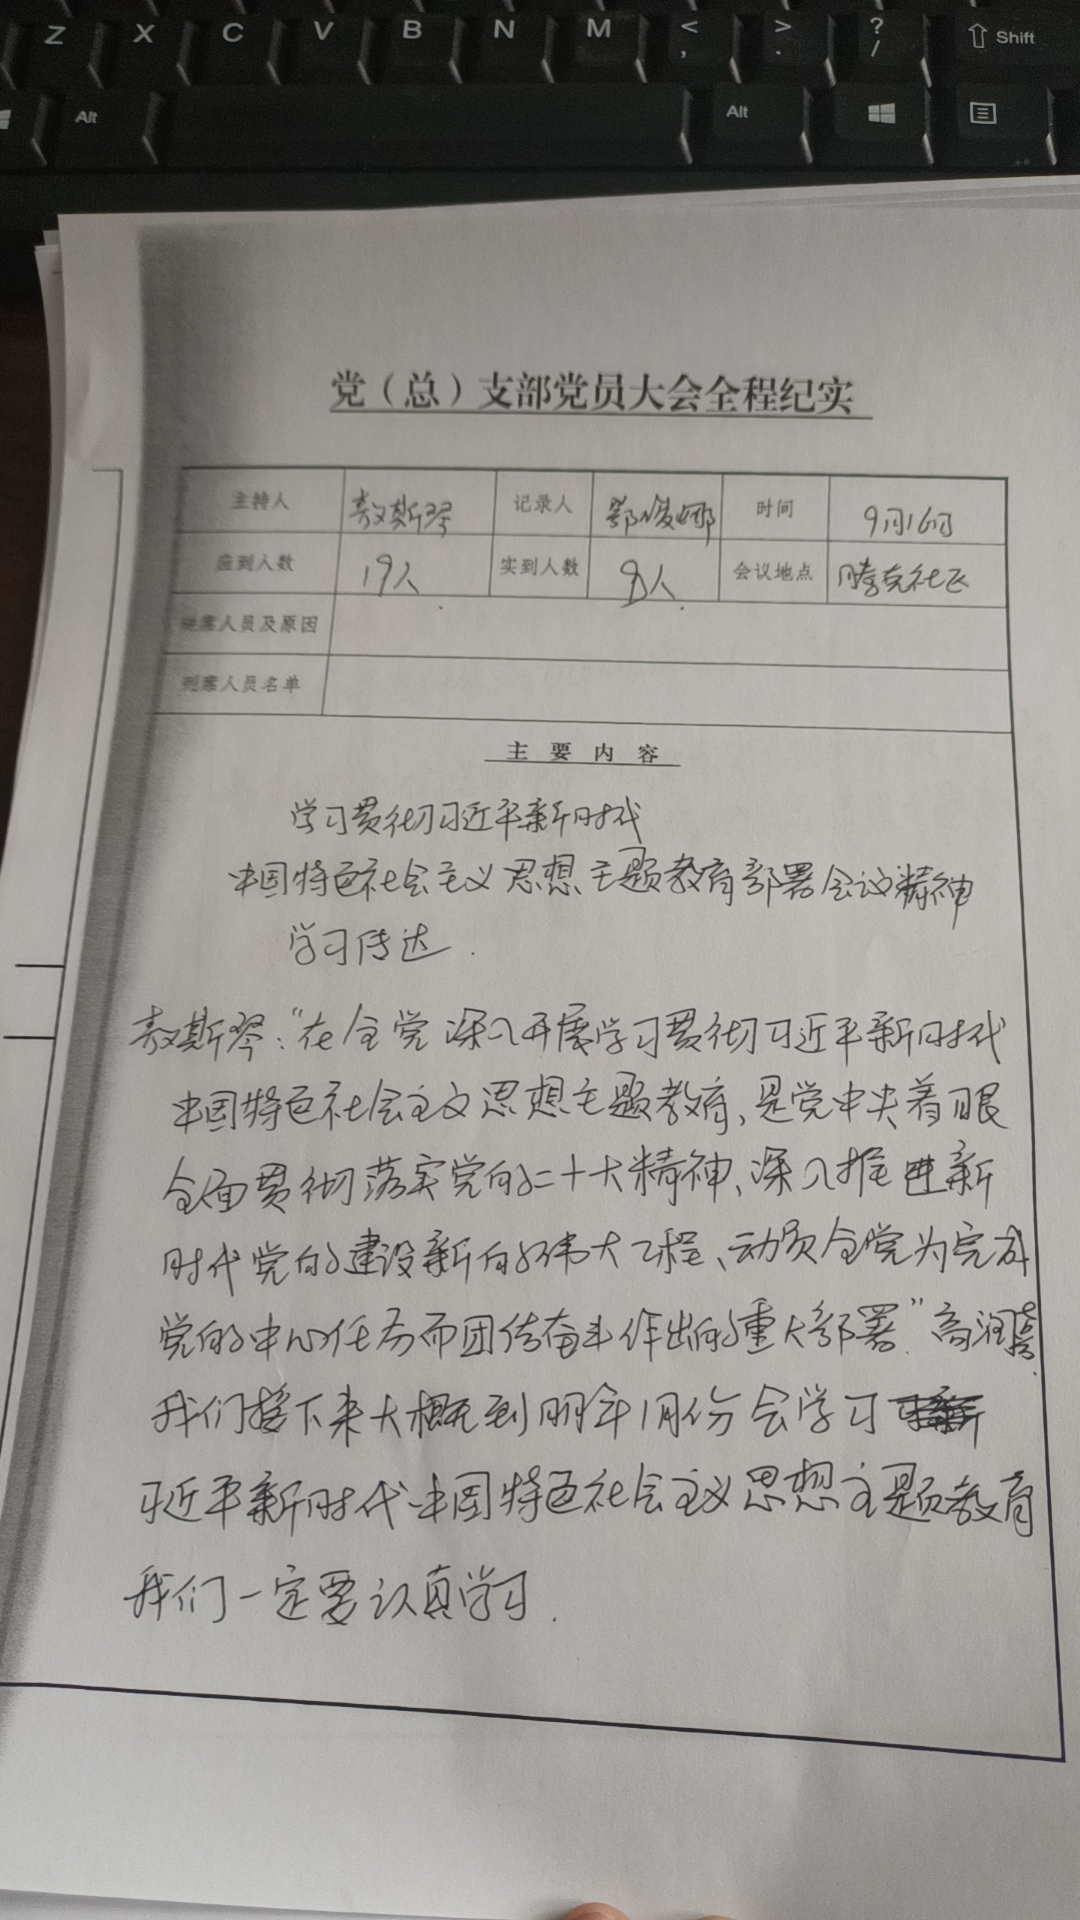 Z X C V B N M < , > . ? / Shift
Alt Alt
党（总）支部党员大会全程纪实
主持人 敖斯琴 记录人 鄂俊娜 时间 9月16日
应到人数 19人 实到人数 8人 会议地点 腾克社区
缺席人员及原因
列席人员名单
主要内容
学习贯彻习近平新时代
中国特色社会主义思想主题教育部署会议精神
学习传达.
敖斯琴:“在全党深入开展学习贯彻习近平新时代
中国特色社会主义思想主题教育、是党中央着眼
全面贯彻落实党的二十大精神、深入推进新
时代党的建设新的伟大工程、动员全党为完成
党的中心任务而团结奋斗作出的重大部署.”高润喜
我们接下来大概到明年1月份会学习
习近平新时代中国特色社会主义思想主题教育
我们一定要认真学习.